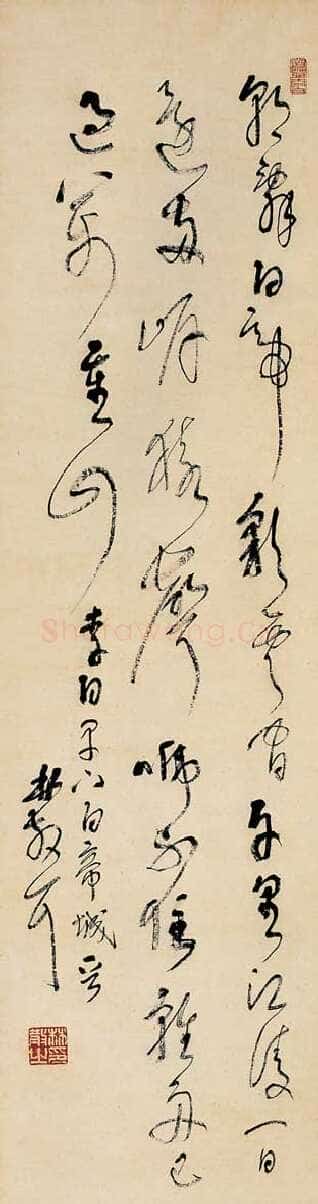 朝辭白帝彩雲間千里江陵一日
還兩岸猿聲啼不住輕舟已
過萬重山 李白早下白帝城
林散耳